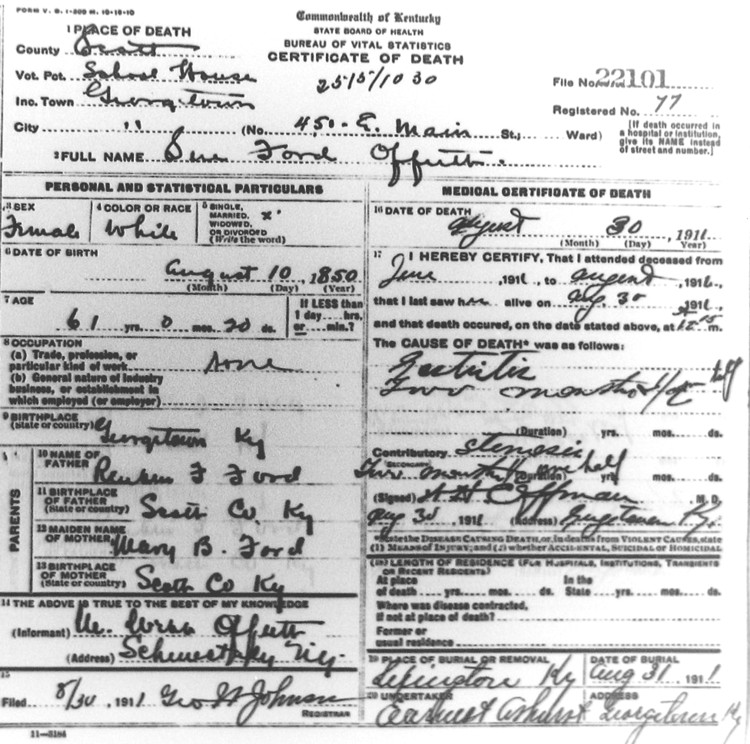 FORM V. S. 1-300 M. 10-18-10
Commonwealth of Kentucky
STATE BOARD OF HEALTH
BUREAU OF VITAL STATISTICS
CERTIFICATE OF DEATH
1 PLACE OF DEATH
County Scott
Vot. Pct. School House
Inc. Town Georgetown
City " (No. 450 - E. Main St.; Ward)
File No. 22101
Registered No. 77
[If death occurred in
a hospital or institution,
give its NAME instead
of street and number.]
2 FULL NAME Ford Offutt
PERSONAL AND STATISTICAL PARTICULARS
3 SEX Female
4 COLOR OR RACE White
5 SINGLE,
MARRIED, x
WIDOWED,
OR DIVORCED
(Write the word)
6 DATE OF BIRTH
August 10, 1850
(Month) (Day) (Year)
7 AGE
61 yrs. 0 mos. 20 ds.
If LESS than
1 day ... hrs.
or ... min.?
8 OCCUPATION
(a) Trade, profession, or
particular kind of work None
(b) General nature of industry
business, or establishment in
which employed (or employer)
9 BIRTHPLACE
(State or country) Georgetown Ky
PARENTS
10 NAME OF
FATHER Reuben F Ford
11 BIRTHPLACE
OF FATHER
(State or country) Scott Co Ky
12 MAIDEN NAME
OF MOTHER Mary B. Ford
13 BIRTHPLACE
OF MOTHER
(State or country) Scott Co Ky
14 THE ABOVE IS TRUE TO THE BEST OF MY KNOWLEDGE
(Informant) Offutt
(Address)
15
Filed 8/30, 1911 Geo W Johnson
REGISTRAR
11-3184
MEDICAL CERTIFICATE OF DEATH
16 DATE OF DEATH
August 30, 1911
(Month) (Day) (Year)
17 I HEREBY CERTIFY, That I attended deceased from
June, 1911, to August, 1911,
that I last saw her alive on Aug. 30 1911,
and that death occured, on the date stated above, at m.
The CAUSE OF DEATH* was as follows:
Gastritis
Two months
(Duration) yrs. mos. ds.
Contributory
(SECONDARY)
Two months one half
(Duration) yrs. mos. ds.
(Signed) Coffman M. D.
Aug 30 1911 (Address) Georgetown Ky.
*State the DISEASE CAUSING DEATH, or, in deaths from VIOLENT CAUSES, state
(1) MEANS OF INJURY; and (2) whether ACCIDENTAL, SUICIDAL or HOMICIDAL
18 LENGTH OF RESIDENCE (FOR HOSPITALS, INSTITUTIONS, TRANSIENTS
OR RECENT RESIDENTS)
At place
of death yrs. mos. ds.
In the
State yrs. mos. ds.
Where was disease contracted,
if not at place of death?
Former or
usual residence
19 PLACE OF BURIAL OR REMOVAL
Lexington Ky
DATE OF BURIAL
Aug 31 1911
20 UNDERTAKER
Earnest Ashurst
ADDRESS
Georgetown Ky